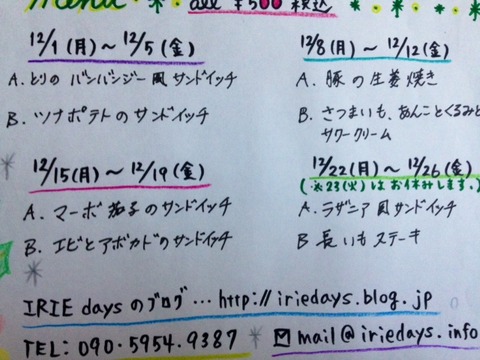 menu all ¥500 税込
12/1(月)~12/5(金)
A. とりの バンバンジー風 サンドイッチ
B. ツナポテトの サンドイッチ
12/8(月)~12/12(金)
A. 豚の生姜焼き
B. さつまいも、あんことくるみと
サワークリーム
12/15(月)~12/19(金)
A. マーボ茄子のサンドイッチ
B. エビとアボカドのサンドイッチ
12/22(月)~12/26(金)
(※23(火)はお休みします。)
A. ラザニア風サンドイッチ
B 長いもステーキ
IRIE days のブログ…http://iriedays.blog.jp
TEL: 090.5954.9387 mail@iriedays.info